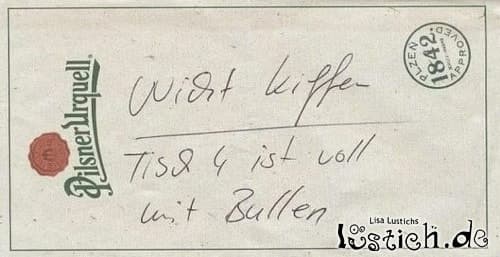 Pilsner Urquell
PLZEN
1842
APPROVED
Nicht kiffen
Tisch 4 ist voll
mit Bullen
Lisa Lustichs
lustich.de